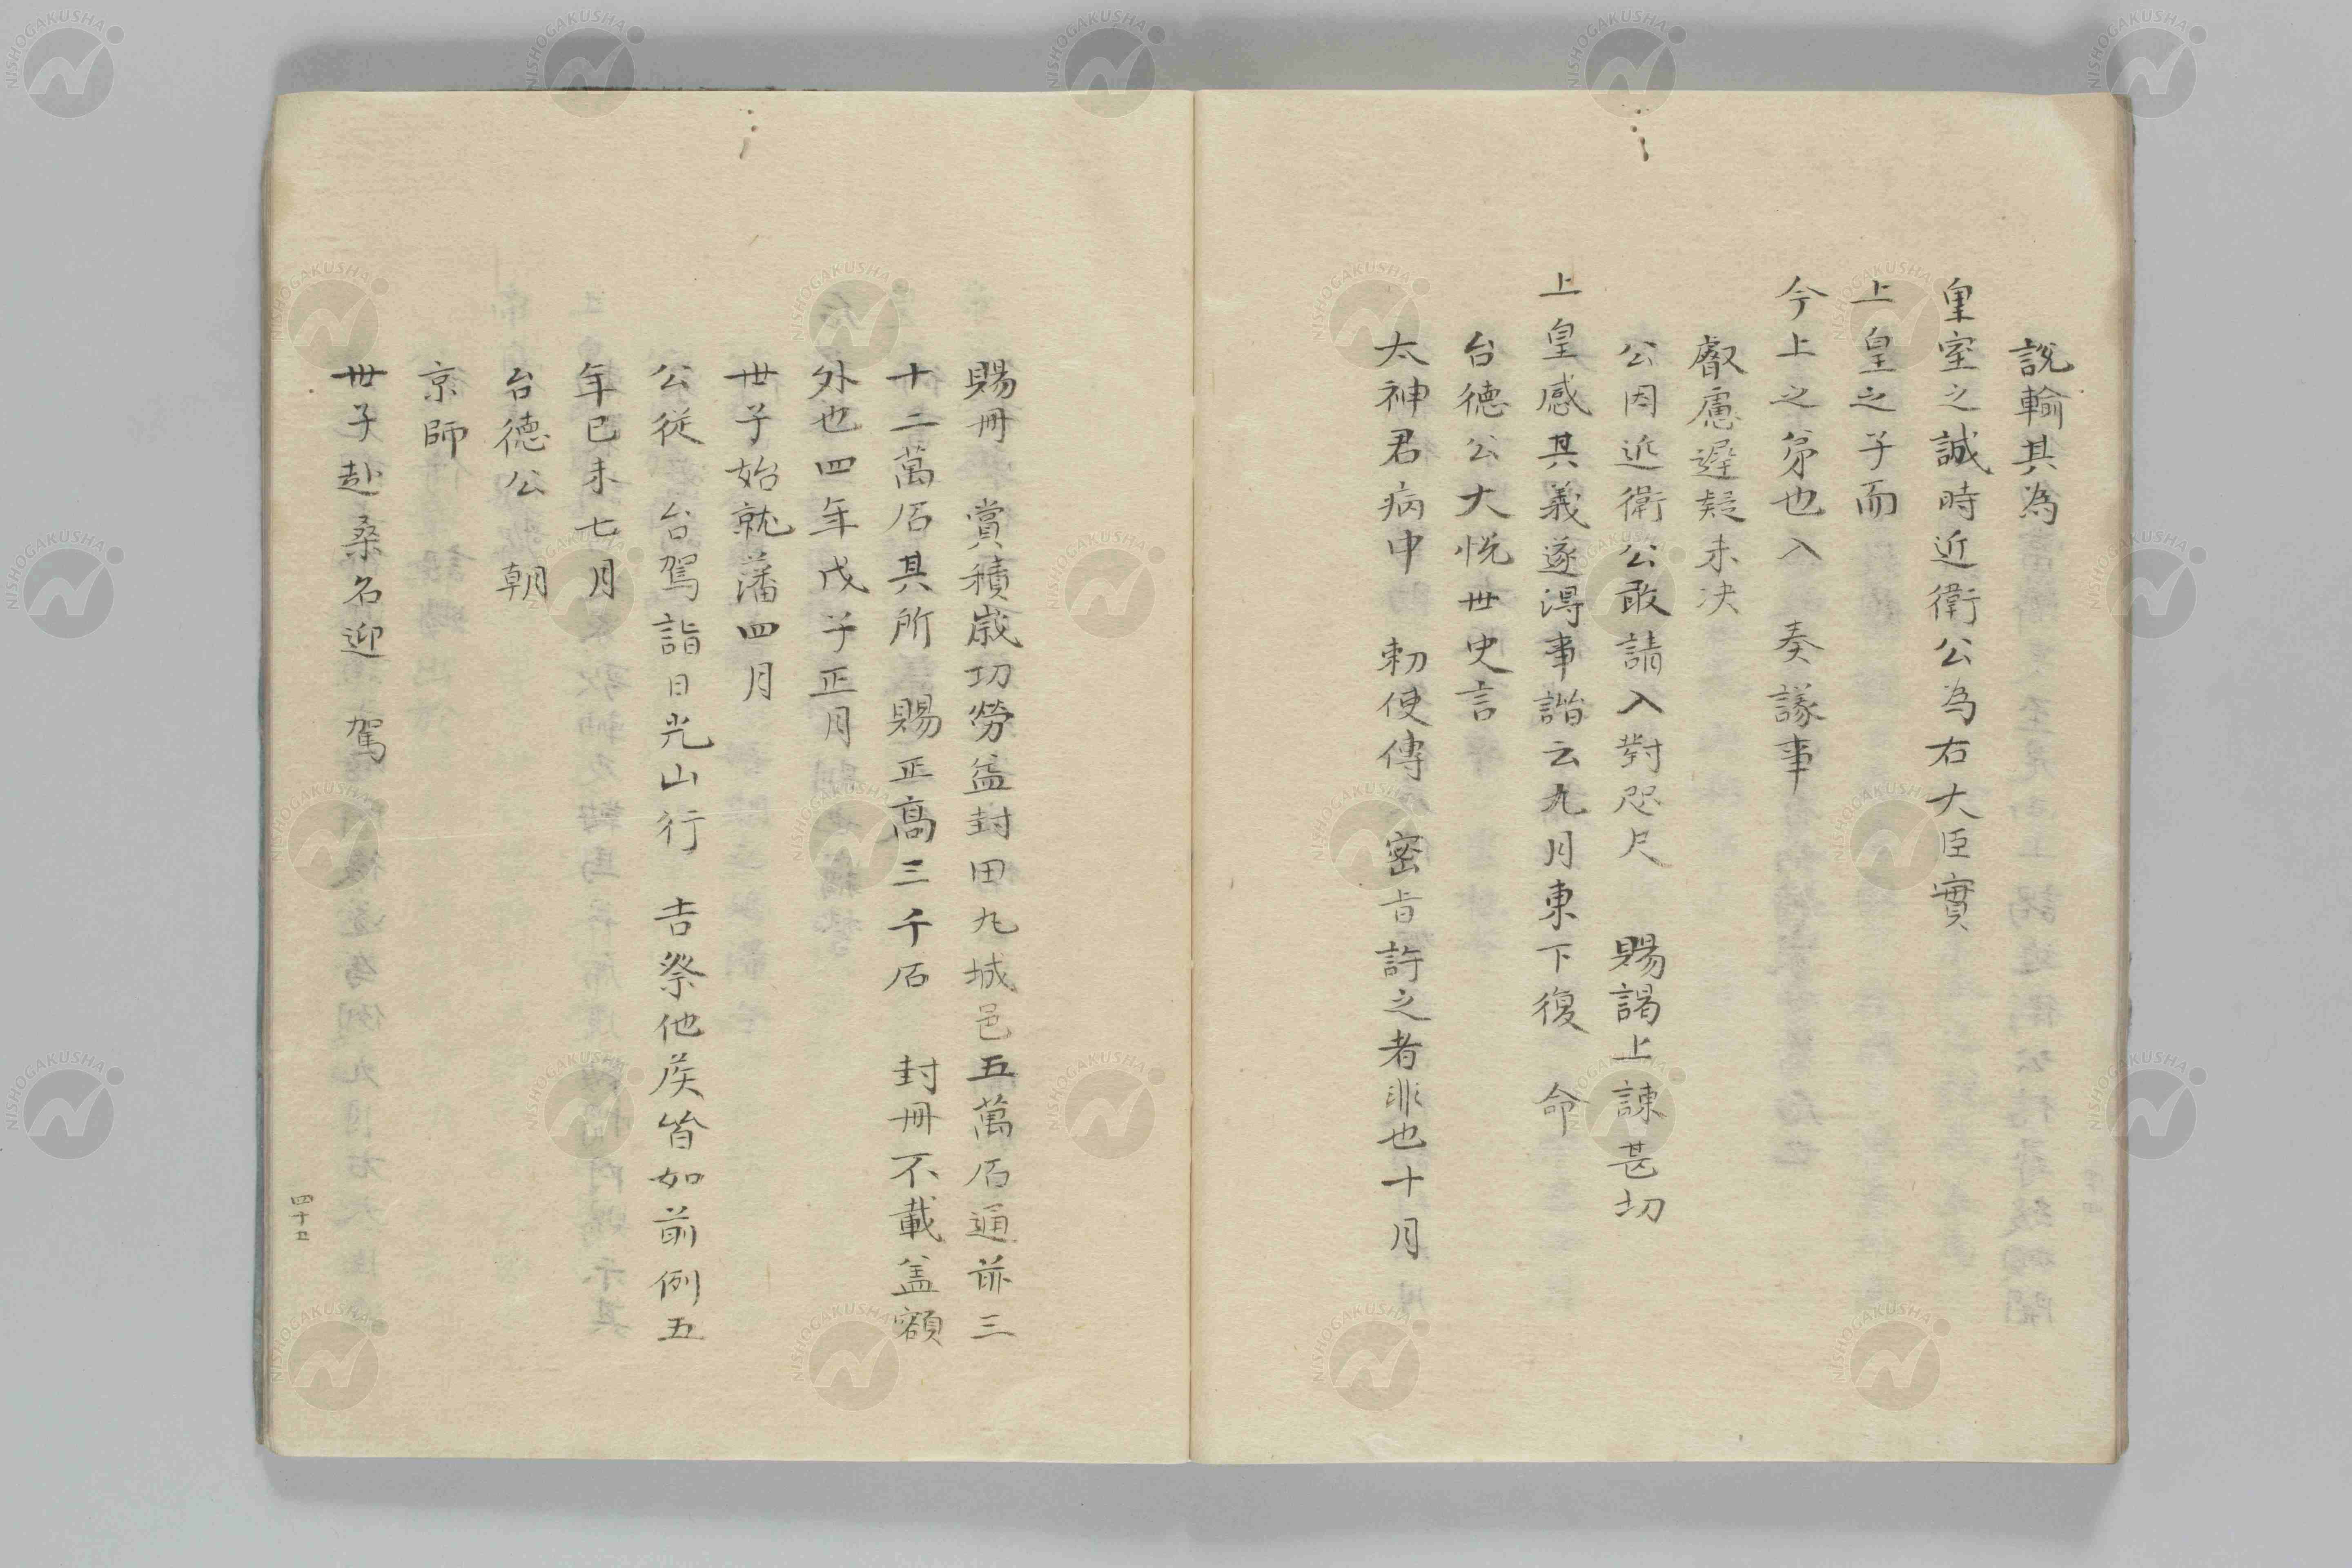 說輸其為
皇室之誠時近衛公為右大臣實
上皇之子而
今上之弟也入　奏議事
叡慮遲疑未決
公因近衛公敢請入對咫尺　賜謁上諫甚切
上皇感其義遂得事諧云九月東下復　命
台德公大悅世史言
太神君病中　勅使傳　密旨許之者非也十月
賜冊　賞積歲功勞益封田九城邑五萬石通前三
十二萬石其所　賜正高三千石　封冊不載盖額
外也四年戊子正月
世子始就藩四月
公從　台駕詣日光山行　吉祭他侯皆如前例五
年已未七月
台德公朝
京師
世子赴桑名迎　駕
四十五
NISHOGAKUSHA